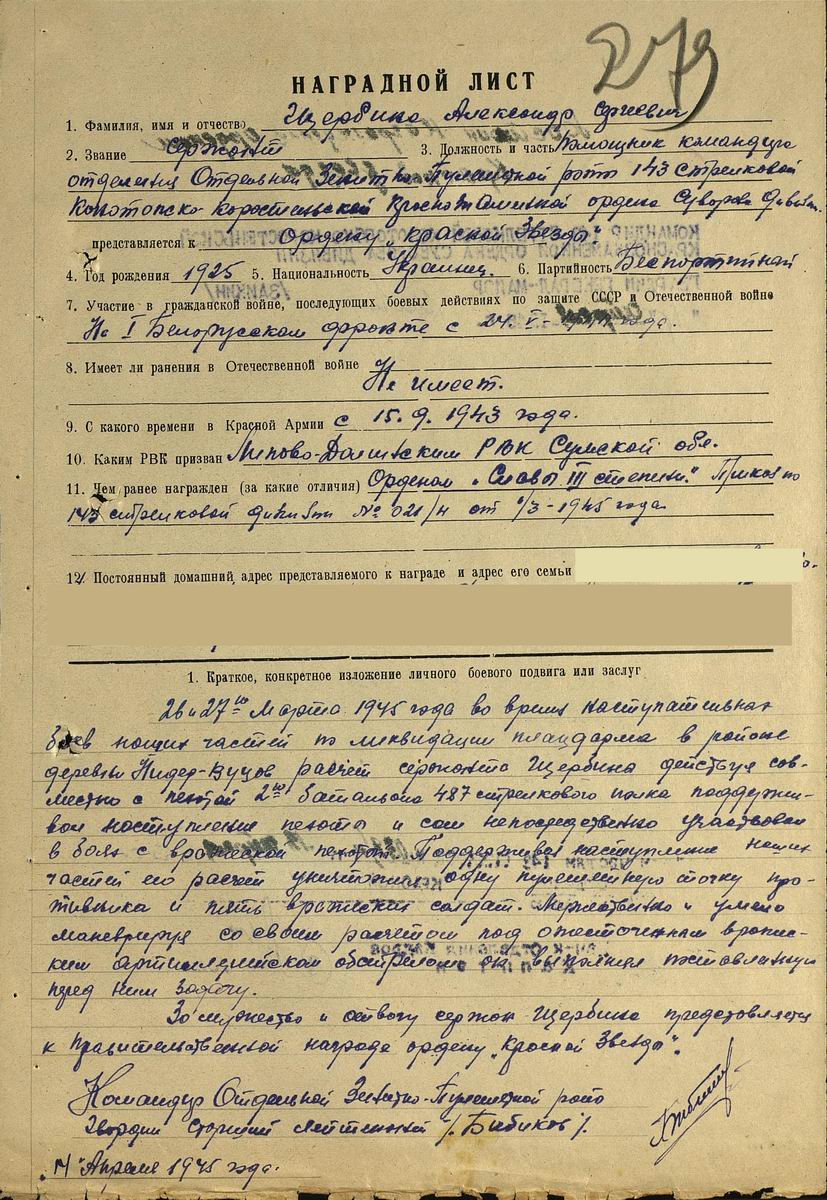 279
НАГРАДНОЙ ЛИСТ
1. Фамилия, имя и отчество Щербина Александр Сергеевич
2. Звание сержант 3. Должность и часть Помощник командира
отделения Отдельной Зенитно Пулеметной роты 143 стрелковой
Конотопско-Коростеньской Краснознаменной ордена Суворова дивизии
представляется к Ордену „Красной Звезды".
4. Год рождения 1925 5. Национальность Украинец. 6. Партийность Беспартийный
7. Участие в гражданской войне, последующих боевых действиях по защите СССР и Отечественной войне
На I Белорусском фронте с 24. года.
8. Имеет ли ранения в Отечественной войне
Не имеет.
9. С какого времени в Красной Армии с 15.9.1943 года.
10. Каким РВК призван Липово-Долинским РВК Сумской обл.
11. Чем ранее награжден (за какие отличия) Орденом „Славы III степени." Приказ по
143 стрелковой дивизии № 021/н от 1/3-1945 года.
12. Постоянный домашний адрес представляемого к награде и адрес его семьи
1. Краткое, конкретное изложение личного боевого подвига или заслуг
26 и 27го Марта 1945 года во время наступательных
боев наших частей по ликвидации плацдарма в районе
деревни Нидер-Вуцов расчет сержанта Щербина действуя сов-
местно с пехотой 2го батальона 487 стрелкового полка поддержи-
вал наступление пехоты и сам непосредственно участвовал
в боях с вражеской пехотой. Поддерживая наступление наших
частей его расчет уничтожил одну пулеметную точку про-
тивника и пять вражеских солдат. Мужественно и умело
маневрируя со своим расчетом под ожесточенным вражес-
ким артиллерийским обстрелом он выполнял поставленную
перед ним задачу.
За мужество и отвагу сержант Щербина представляется
к правительственной награде ордену „Красной Звезды".
Командир Отдельной Зенитно-Пулеметной роты
Гвардии Старший лейтенант /. Бибиков /.
Апреля 1945 года.